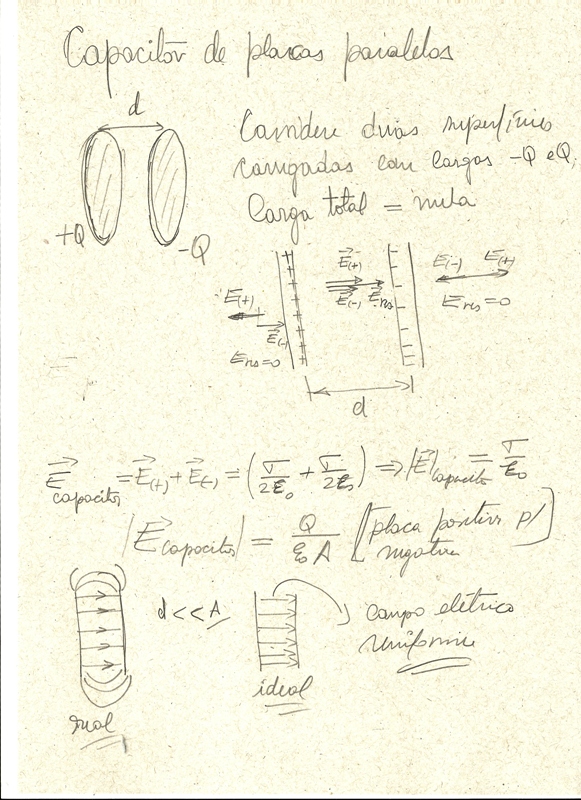 Capacitor de placas paralelas
d
Considere duas superfícies
carregadas com cargas -Q e Q,
Carga total = nula
+Q
-Q
E(+)
E(-)
Eres=0
E(+)
E(-)
Eres
E(-) E(+)
Eres=0
d
E capacitor = E(+) + E(-) = (σ/2ε₀ + σ/2ε₀) ⇒ |E| capacitor = σ/ε₀
|E capacitor| = Q/ε₀A [placa positiva p/
negativa]
d << A
campo elétrico
uniforme
real
ideal